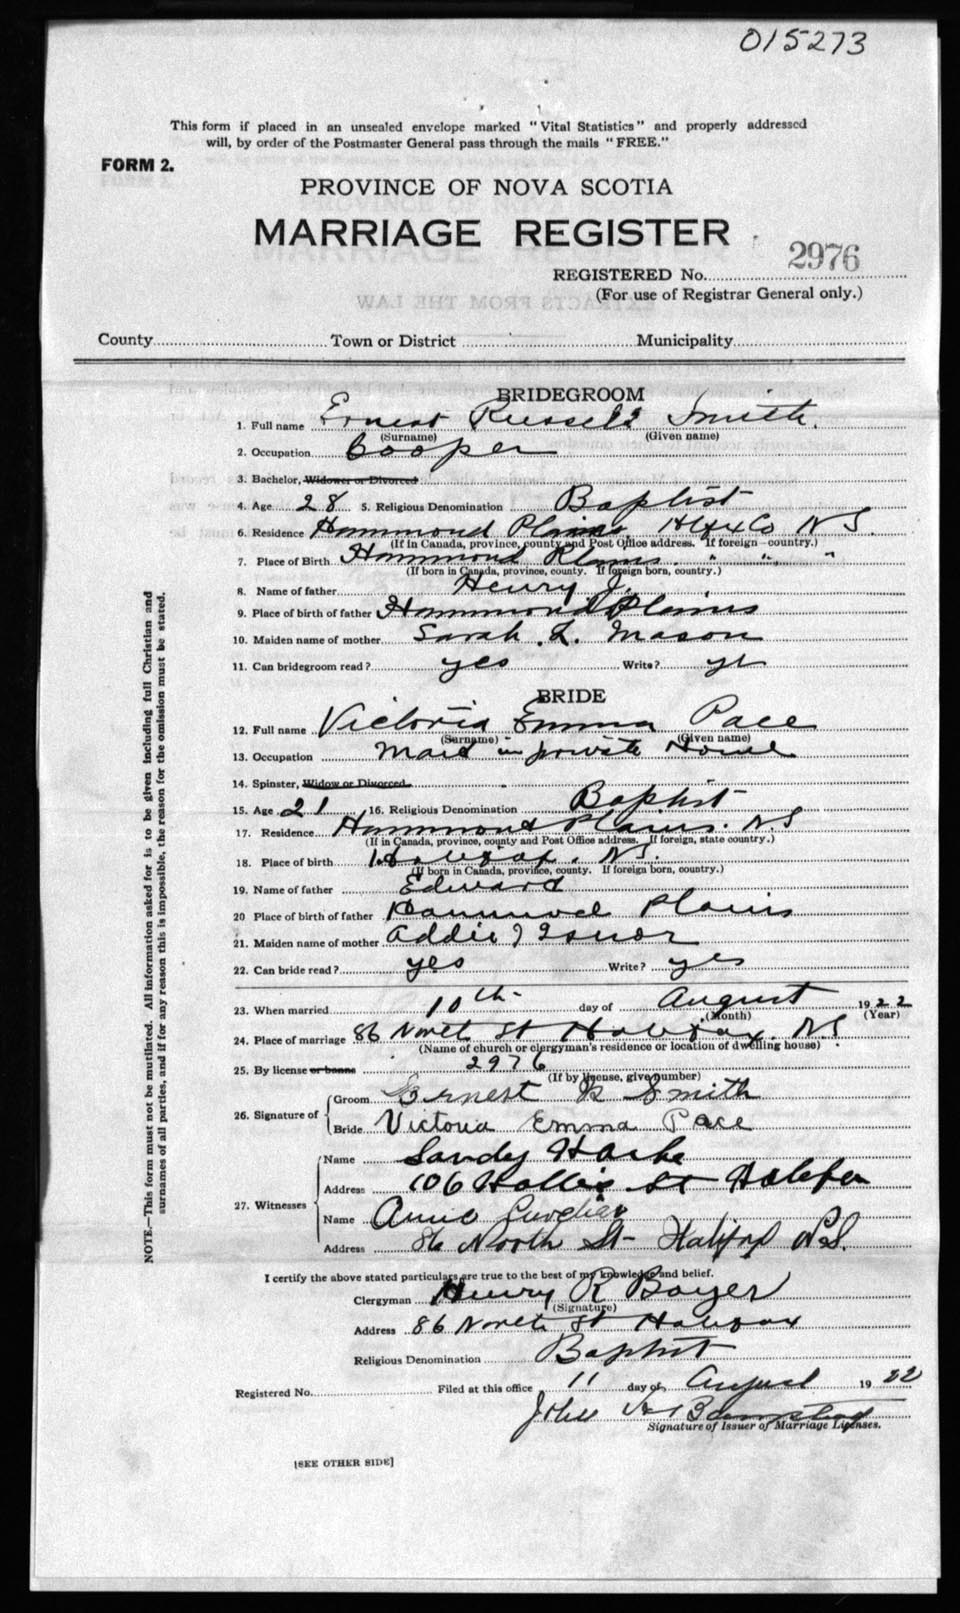 015273
This form if placed in an unsealed envelope marked "Vital Statistics" and properly addressed
will, by order of the Postmaster General pass through the mails "FREE."
FORM 2.
PROVINCE OF NOVA SCOTIA
MARRIAGE REGISTER
REGISTERED No. 2976
(For use of Registrar General only.)
EXTRACTS FROM THE LAW
County Town or District Municipality
BRIDEGROOM
1. Full name Ernest Russell Smith.
(Surname) (Given name)
2. Occupation Cooper
3. Bachelor, Widower or Divorced
4. Age 28 5. Religious Denomination Baptist
6. Residence Hammond Plains, Hfx Co N.S.
(If in Canada, province, county and Post Office address. If foreign country.)
7. Place of Birth Hammond Plains. " " "
(If born in Canada, province, county. If foreign born, country.)
8. Name of father Henry J.
9. Place of birth of father Hammond Plains
10. Maiden name of mother Sarah L. Mason
11. Can bridegroom read? yes Write? yes
BRIDE
12. Full name Victoria Emma Pace
(Surname) (Given name)
13. Occupation Maid in private Home
14. Spinster, Widow or Divorced
15. Age 21 16. Religious Denomination Baptist
17. Residence Hammond Plains. N.S
(If in Canada, province, county and Post Office address. If foreign, state country.)
18. Place of birth Halifax. N.S.
(If born in Canada, province, county. If foreign born, country.)
19. Name of father Edward
20 Place of birth of father Hammond Plains
21. Maiden name of mother Addie
22. Can bride read? yes Write? yes
23. When married 10th day of August 1922
(Month) (Year)
24. Place of marriage 86 North St Halifax. N.S.
(Name of church or clergyman's residence or location of dwelling house)
25. By license or banns 2976
(If by license, give number)
26. Signature of Groom Ernest R Smith
Bride Victoria Emma Pace
27. Witnesses Name Sandy
Address 106 Hollis St Halifax
Name Annie
Address 86 North St Halifax N.S.
I certify the above stated particulars are true to the best of my knowledge and belief.
Clergyman Henry R Boyer
(Signature)
Address 86 North St Halifax
Religious Denomination Baptist
Registered No. Filed at this office 11 day of August 1922
Signature of Issuer of Marriage Licenses.
[SEE OTHER SIDE]
NOTE.—This form must not be mutilated. All information asked for is to be given including full Christian and
surnames of all parties, and if for any reason this is impossible, the reason for the omission must be stated.